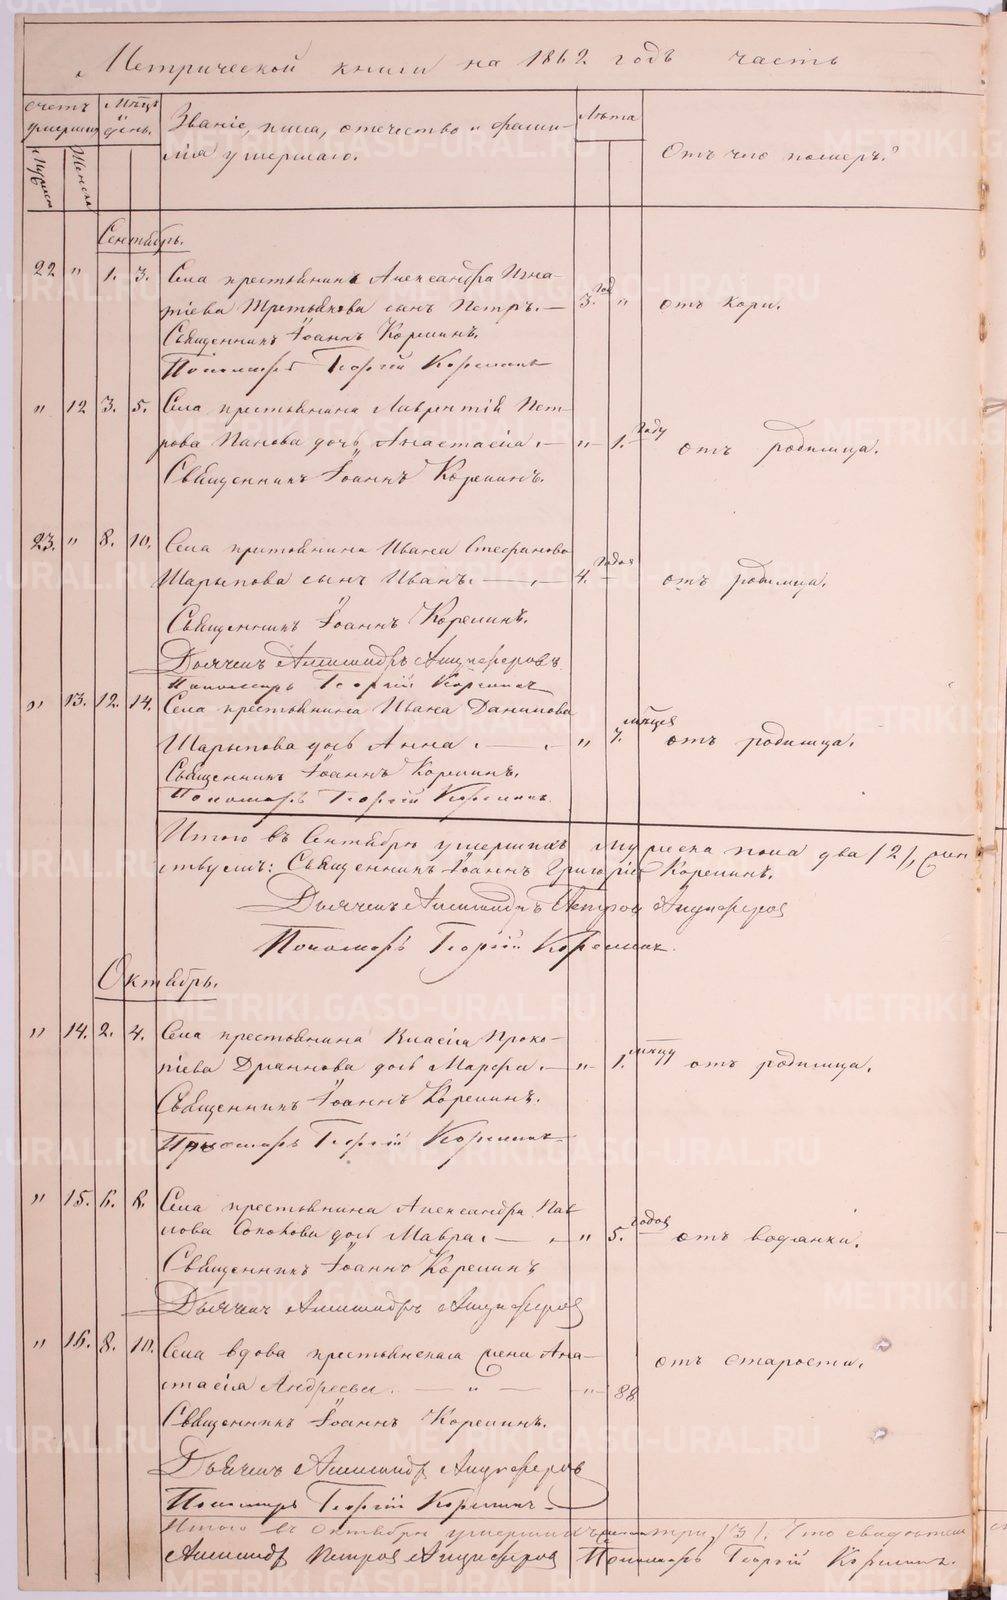 Метрической книги на 1862 годъ часть
Счетъ умершихъ
Мѣсяцъ и день.
Званіе, имя, отчество и фами-
лія умершаго.
Лѣта
Отъ чего померъ?
Мужеск
Женска
Сентябрь.
22 " 1. 3. Села крестьянина Александра Игна-
тіева Третьякова сынъ Петръ. — 3. год " отъ кори.
Священникъ Іоаннъ Корелинъ.
Пономарь Георгій Корелинъ
" 12 3. 5. Села крестьянина Лаврентій Пет-
рова Панова дочь Анастасія. — " 1. году отъ родимца.
Священникъ Іоаннъ Корелинъ.
23. " 8. 10. Села крестьянина Ивана Стефанова
Шарыпова сынъ Иванъ. — 4. годов отъ родимца.
Священникъ Іоаннъ Корелинъ.
Дьячекъ Александръ Анцыферовъ
Пономарь Георгій Корелинъ
" 13. 12. 14. Села крестьянина Ивана Данилова
Шарыпова дочь Анна. — " 7. мѣсяцев отъ родимца.
Священникъ Іоаннъ Корелинъ.
Пономарь Георгій Корелинъ.
Итого въ Сентябрѣ умершихъ мужеска пола два /2/, жен
Священникъ Іоаннъ Григоріев Корелинъ.
Дьячекъ Александръ Петров Анцыферов
Пономарь Георгій Корелинъ.
Октябрь.
" 14. 2. 4. Села крестьянина Власія Проко-
піева Дрянкова дочь Марфа. — " 1. мѣсяцу отъ родимца.
Священникъ Іоаннъ Корелинъ.
Пономарь Георгій Корелинъ
" 15. 6. 8. Села крестьянина Александра Пав
лова дочь Мавра. — " 5. годов отъ водянки.
Священникъ Іоаннъ Корелинъ
Дьячекъ Александръ Анцыферов
" 16. 8. 10. Села вдова крестьянская жена Ана-
стасія Андреева. — " — " 88 отъ старости.
Священникъ Іоаннъ Корелинъ.
Дьячекъ Александр Анцыферов
Пономарь Георгій Корелинъ
Итого въ Октябрѣ умершихъ три /3/. Что свидѣтел
Александр Петров Анцыферов Пономарь Георгій Корелинъ.
METRIKI.GASO-URAL.RU